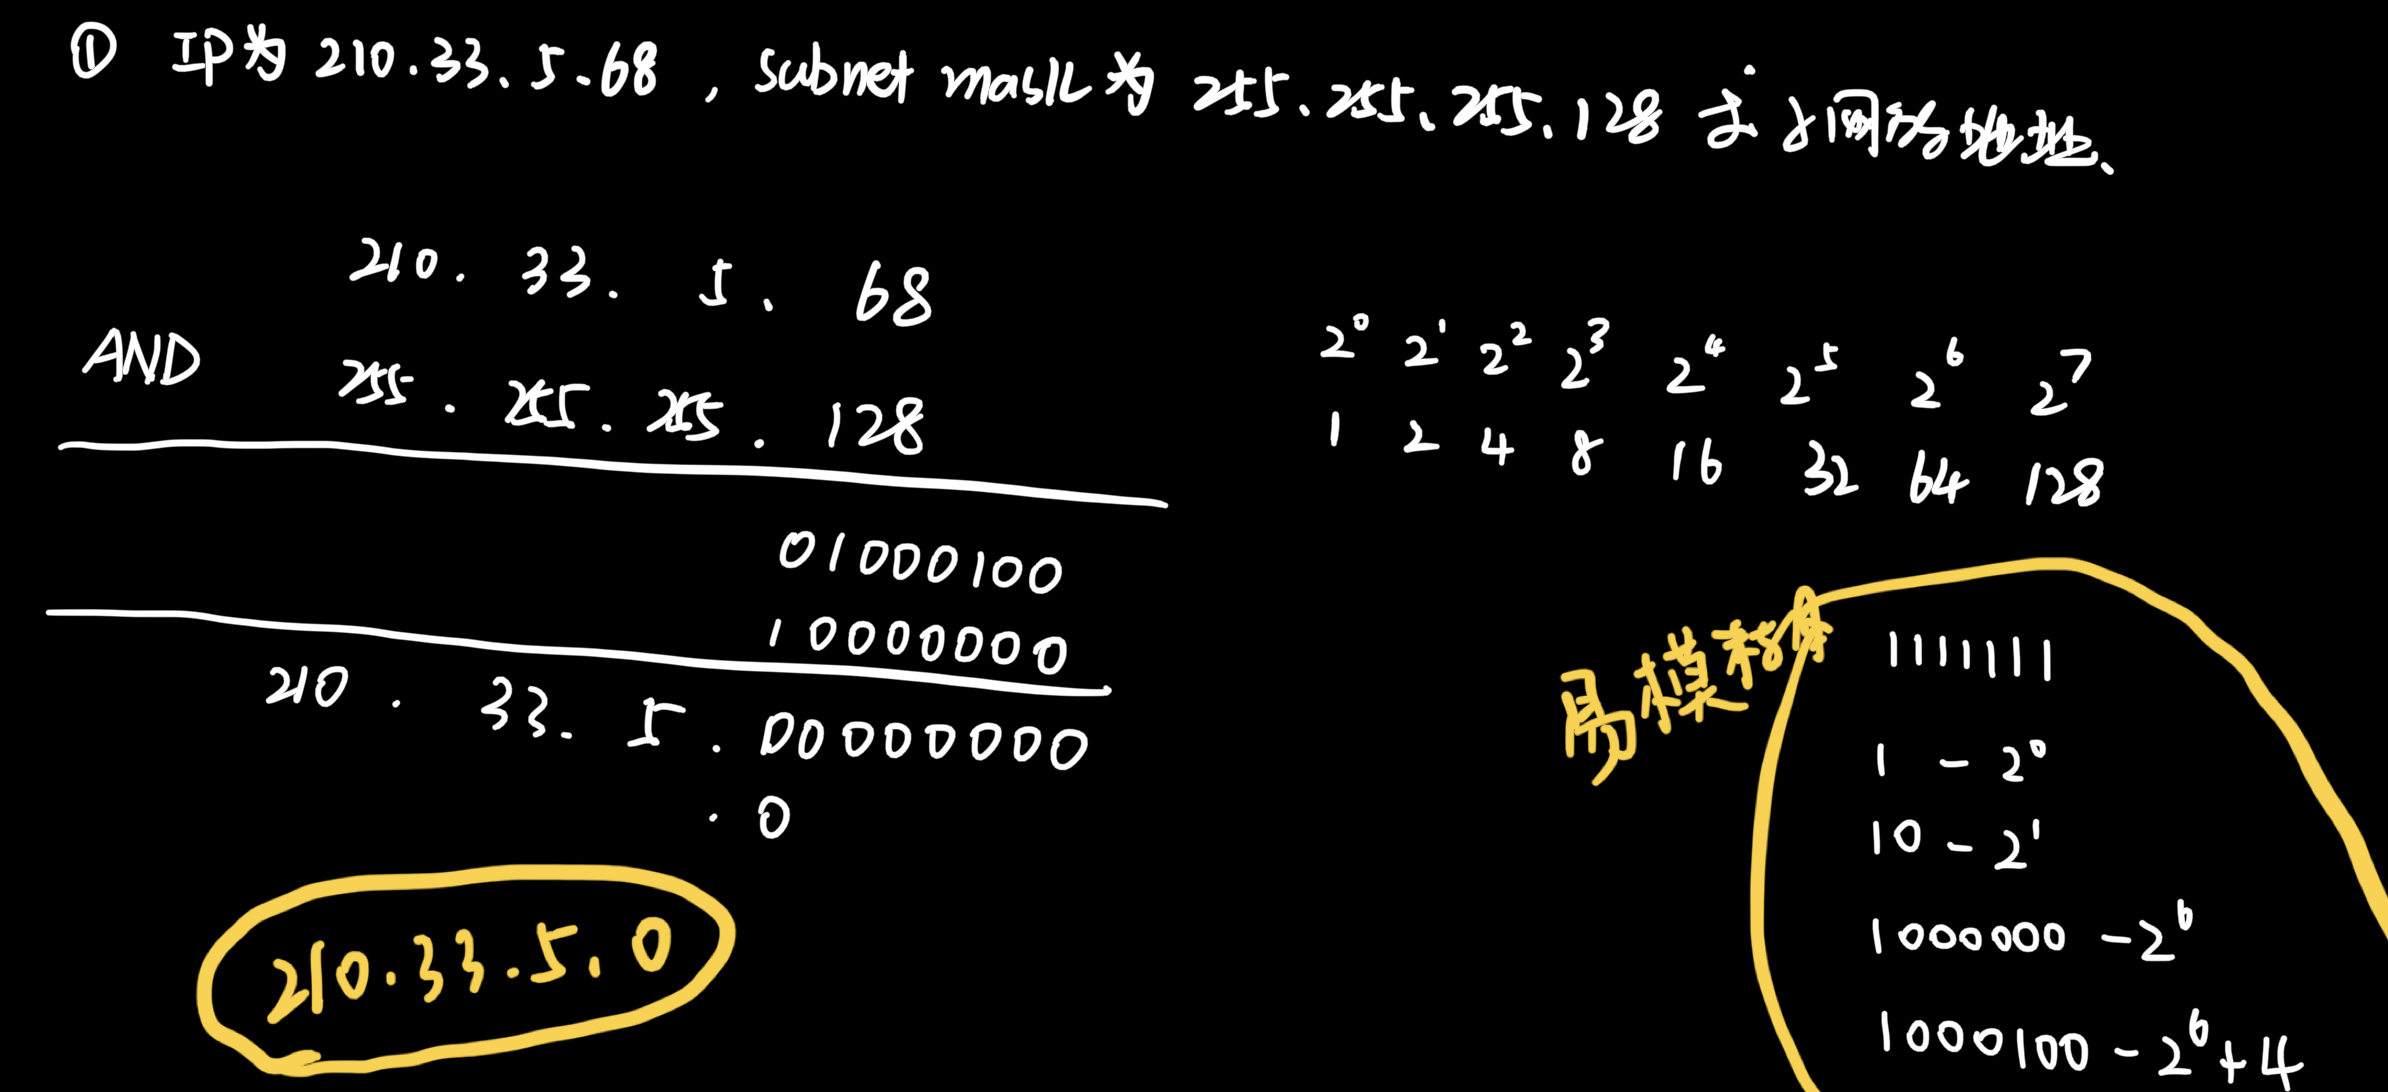 ① IP为 210.33.5.68 , subnet mask为 255.255.255.128 求子网络地址.
210. 33. 5. 68
AND 255. 255. 255. 128
01000100
10000000
210. 33. 5. 00000000
. 0
210.33.5.0
2⁰ 2¹ 2² 2³ 2⁴ 2⁵ 2⁶ 2⁷
1 2 4 8 16 32 64 128
1111111
1 - 2⁰
10 - 2¹
1000000 - 2⁶
1000100 - 2⁶+4